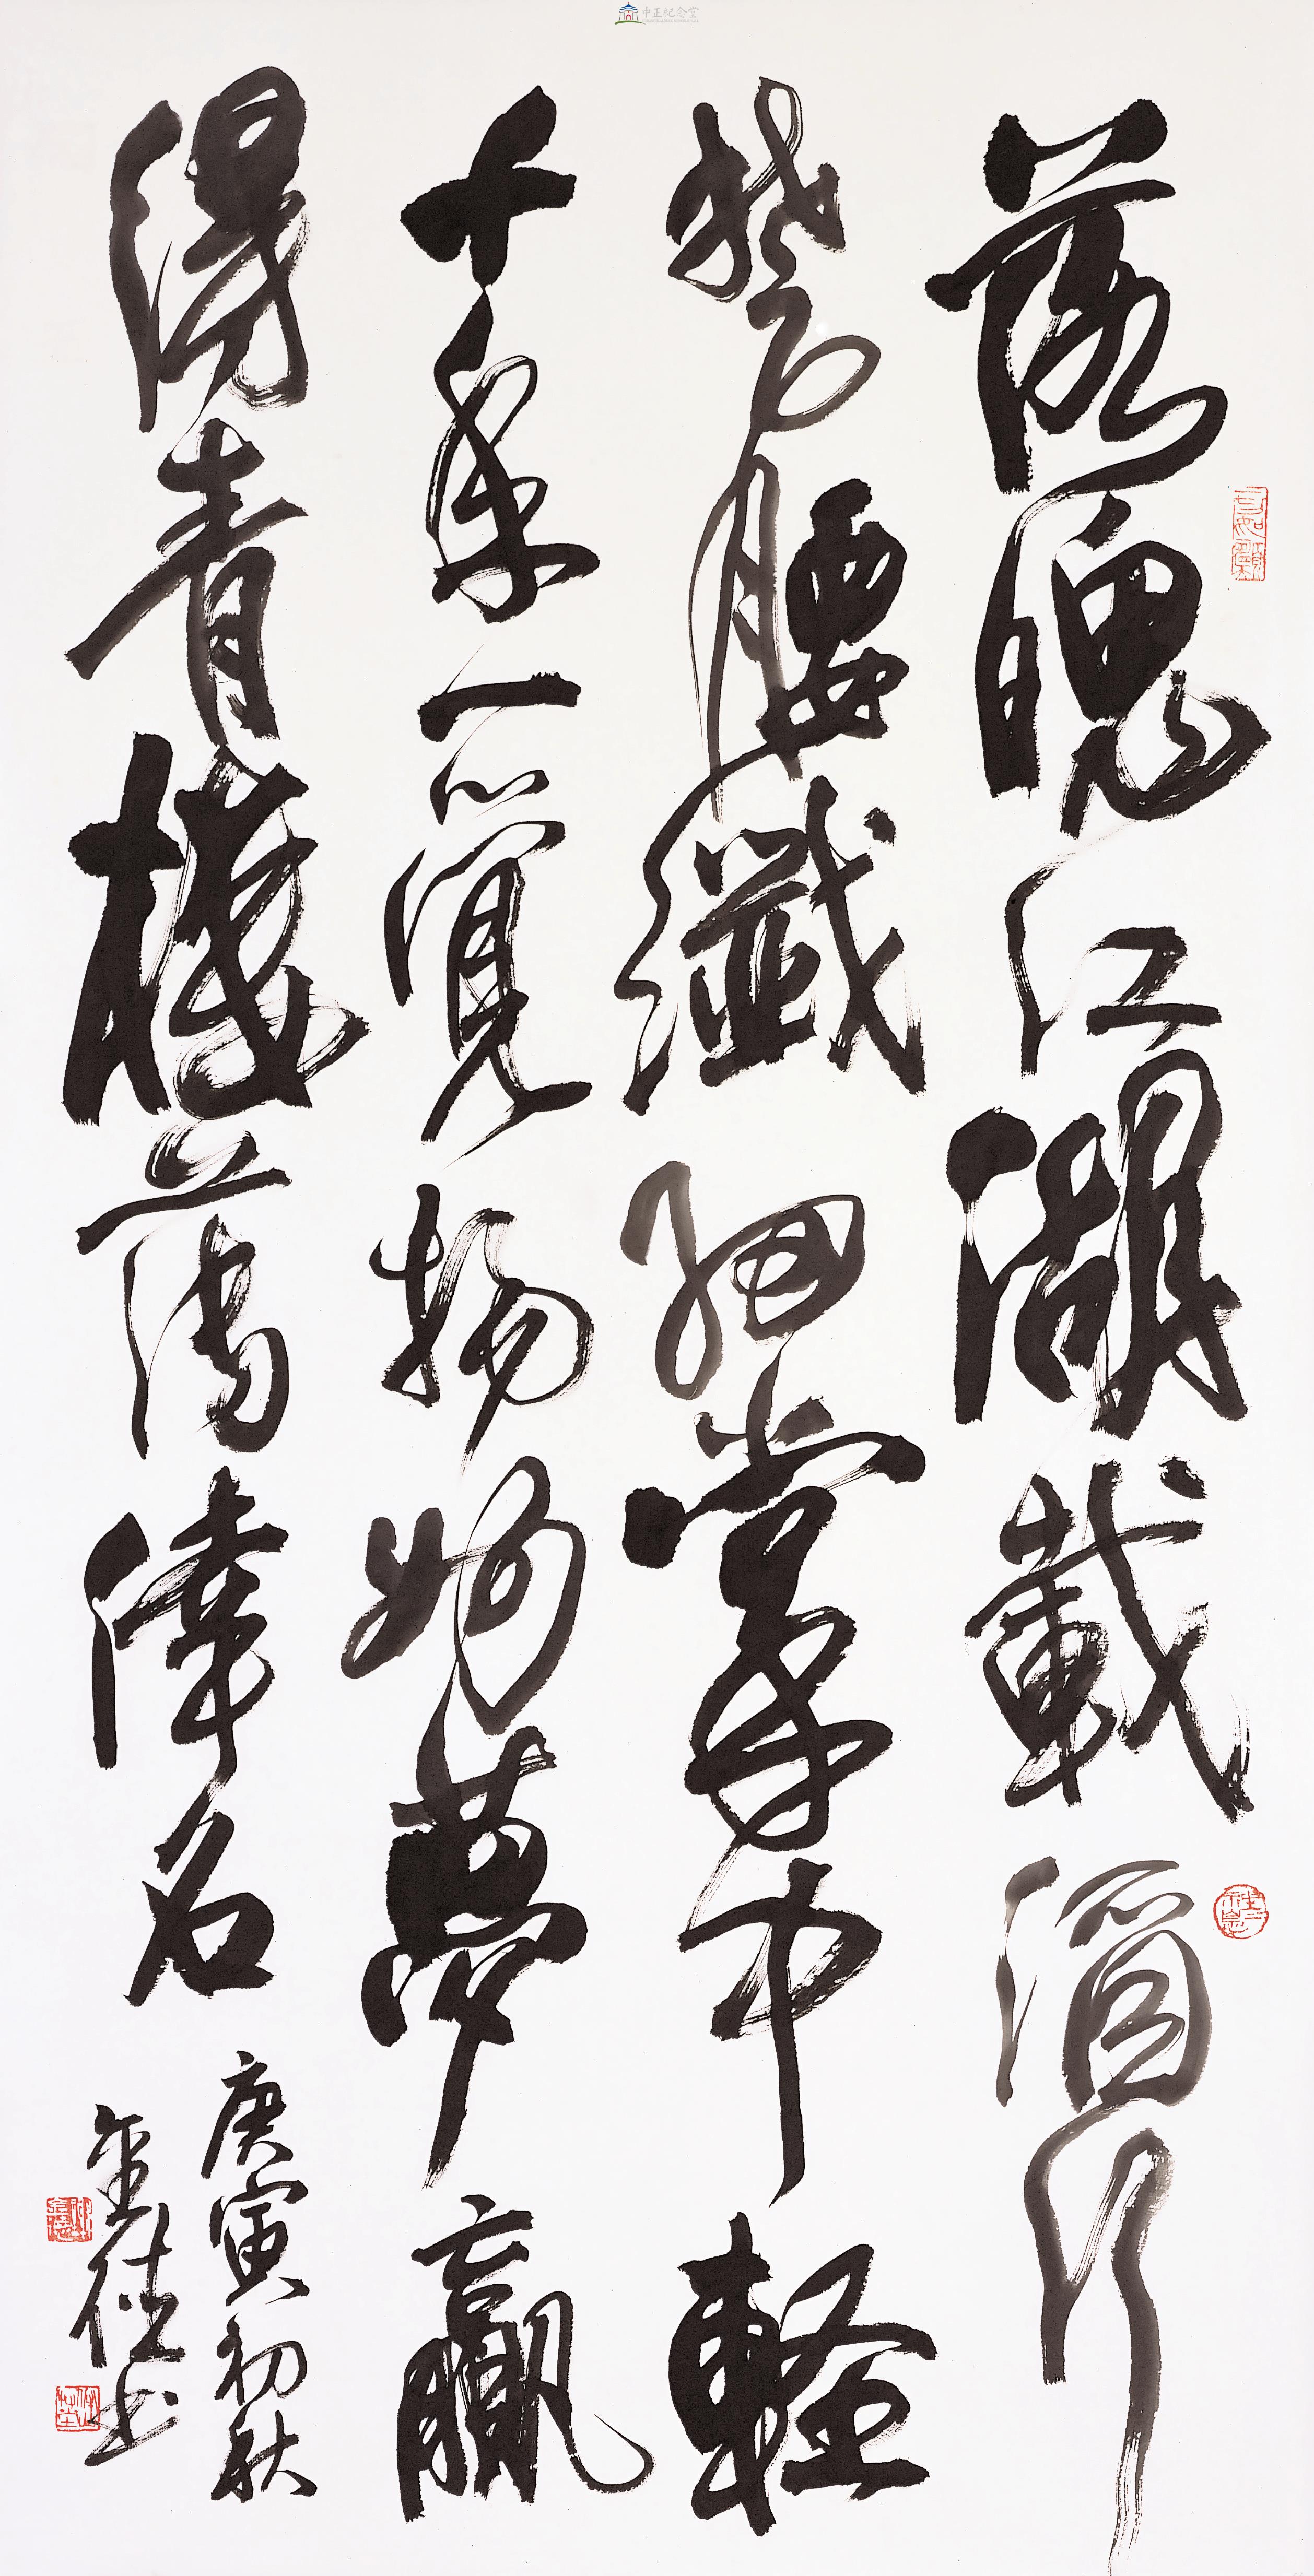 落魄江湖載酒行
楚腰纖細掌中輕
十年一覺揚州夢
贏得青樓薄倖名
庚寅初秋
中正紀念堂